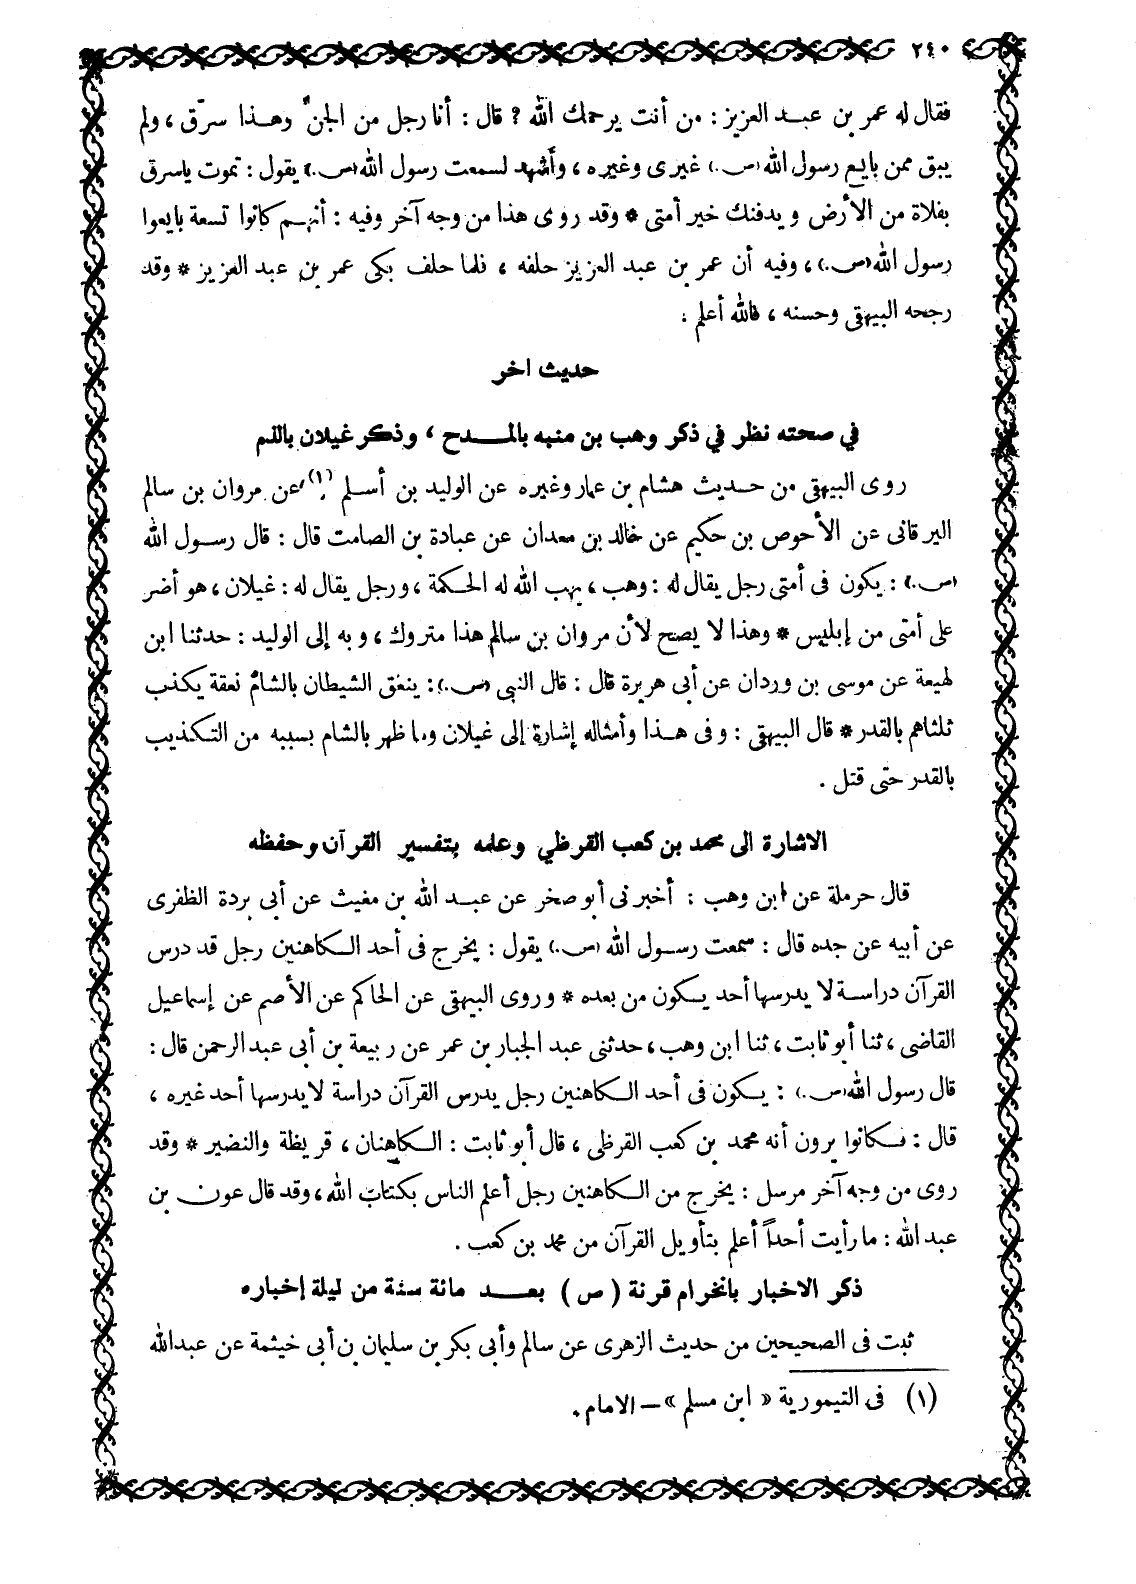 ٢٤٠
فقال له عمر بن عبد العزيز : من أنت يرحمك الله ? قال : أنا رجل من الجنّ وهذا سرّق ، ولم
يبق ممن بايع رسول الله (ص.) غيرى وغيره ، وأشهد لسمعت رسول الله (ص.) يقول : تموت ياسرق
بفلاة من الأرض ويدفنك خير أمتى * وقد روى هذا من وجه آخر وفيه : أنهم كانوا تسعة بايعوا
رسول الله (ص.) ، وفيه أن عمر بن عبد العزيز حلفه ، فلما حلف بكى عمر بن عبد العزيز * وقد
رجحه البيهقى وحسنه ، فالله أعلم :
حديث اخر
في صحته نظر في ذكر وهب بن منبه بالمدح ، وذكر غيلان بالذم
روى البيهقى من حديث هشام بن عمار وغيره عن الوليد بن أسلم (١) ، عن مروان بن سالم
اليرقانى عن الأحوص بن حكيم عن خالد بن معدان عن عبادة بن الصامت قال : قال رسول الله
(ص.) : يكون فى أمتى رجل يقال له : وهب ، يهب الله له الحكمة ، ورجل يقال له : غيلان ، هو أضر
على أمتى من إبليس * وهذا لا يصح لأن مروان بن سالم هذا متروك ، وبه إلى الوليد : حدثنا ابن
لهيعة عن موسى بن وردان عن أبى هريرة قال : قال النبى (ص.) : ينعق الشيطان بالشام نعقة يكذب
ثلثاهم بالقدر * قال البيهقى : وفى هذا وأمثاله إشارة إلى غيلان وما ظهر بالشام بسببه من التكذيب
بالقدر حتى قتل .
الاشارة الى محمد بن كعب القرظي وعلمه بتفسير القرآن وحفظه
قال حرملة عن ابن وهب : أخبرنى أبو صخر عن عبد الله بن مغيث عن أبى بردة الظفرى
عن أبيه عن جده قال : سمعت رسول الله (ص.) يقول : يخرج فى أحد الكاهنين رجل قد درس
القرآن دراسة لا يدرسها أحد يكون من بعده * وروى البيهقى عن الحاكم عن الأصم عن إسماعيل
القاضى ، ثنا أبو ثابت ، ثنا ابن وهب ، حدثنى عبد الجبار بن عمر عن ربيعة بن أبى عبد الرحمن قال :
قال رسول الله (ص.) : يكون فى أحد الكاهنين رجل يدرس القرآن دراسة لا يدرسها أحد غيره ،
قال : فكانوا يرون أنه محمد بن كعب القرظى ، قال أبو ثابت : الكاهنان ، قريظة والنضير * وقد
روى من وجه آخر مرسل : يخرج من الكاهنين رجل أعلم الناس بكتاب الله ، وقد قال عون بن
عبد الله : ما رأيت أحداً أعلم بتأويل القرآن من محمد بن كعب .
ذكر الاخبار بانخرام قرنة (ص) بعد مائة سنة من ليلة إخباره
ثبت فى الصحيحين من حديث الزهرى عن سالم وأبى بكر بن سليمان بن أبى خيثمة عن عبدالله
(١) فى التيمورية « ابن مسلم » — الامام .